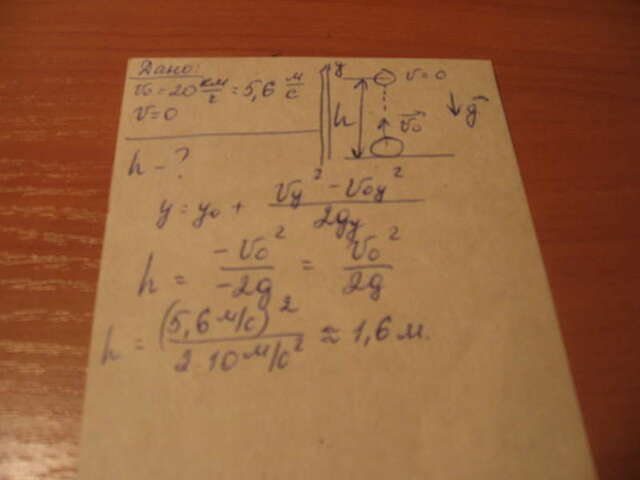 Дано:
v₀ = 20 км/ч = 5,6 м/с
v = 0
h - ?
y
v = 0
h
v₀
g
y = y₀ + (vy² - v₀y²)/2gy
h = -v₀²/-2g = v₀²/2g
h = (5,6 м/с)²/2·10 м/с² ≈ 1,6 м.